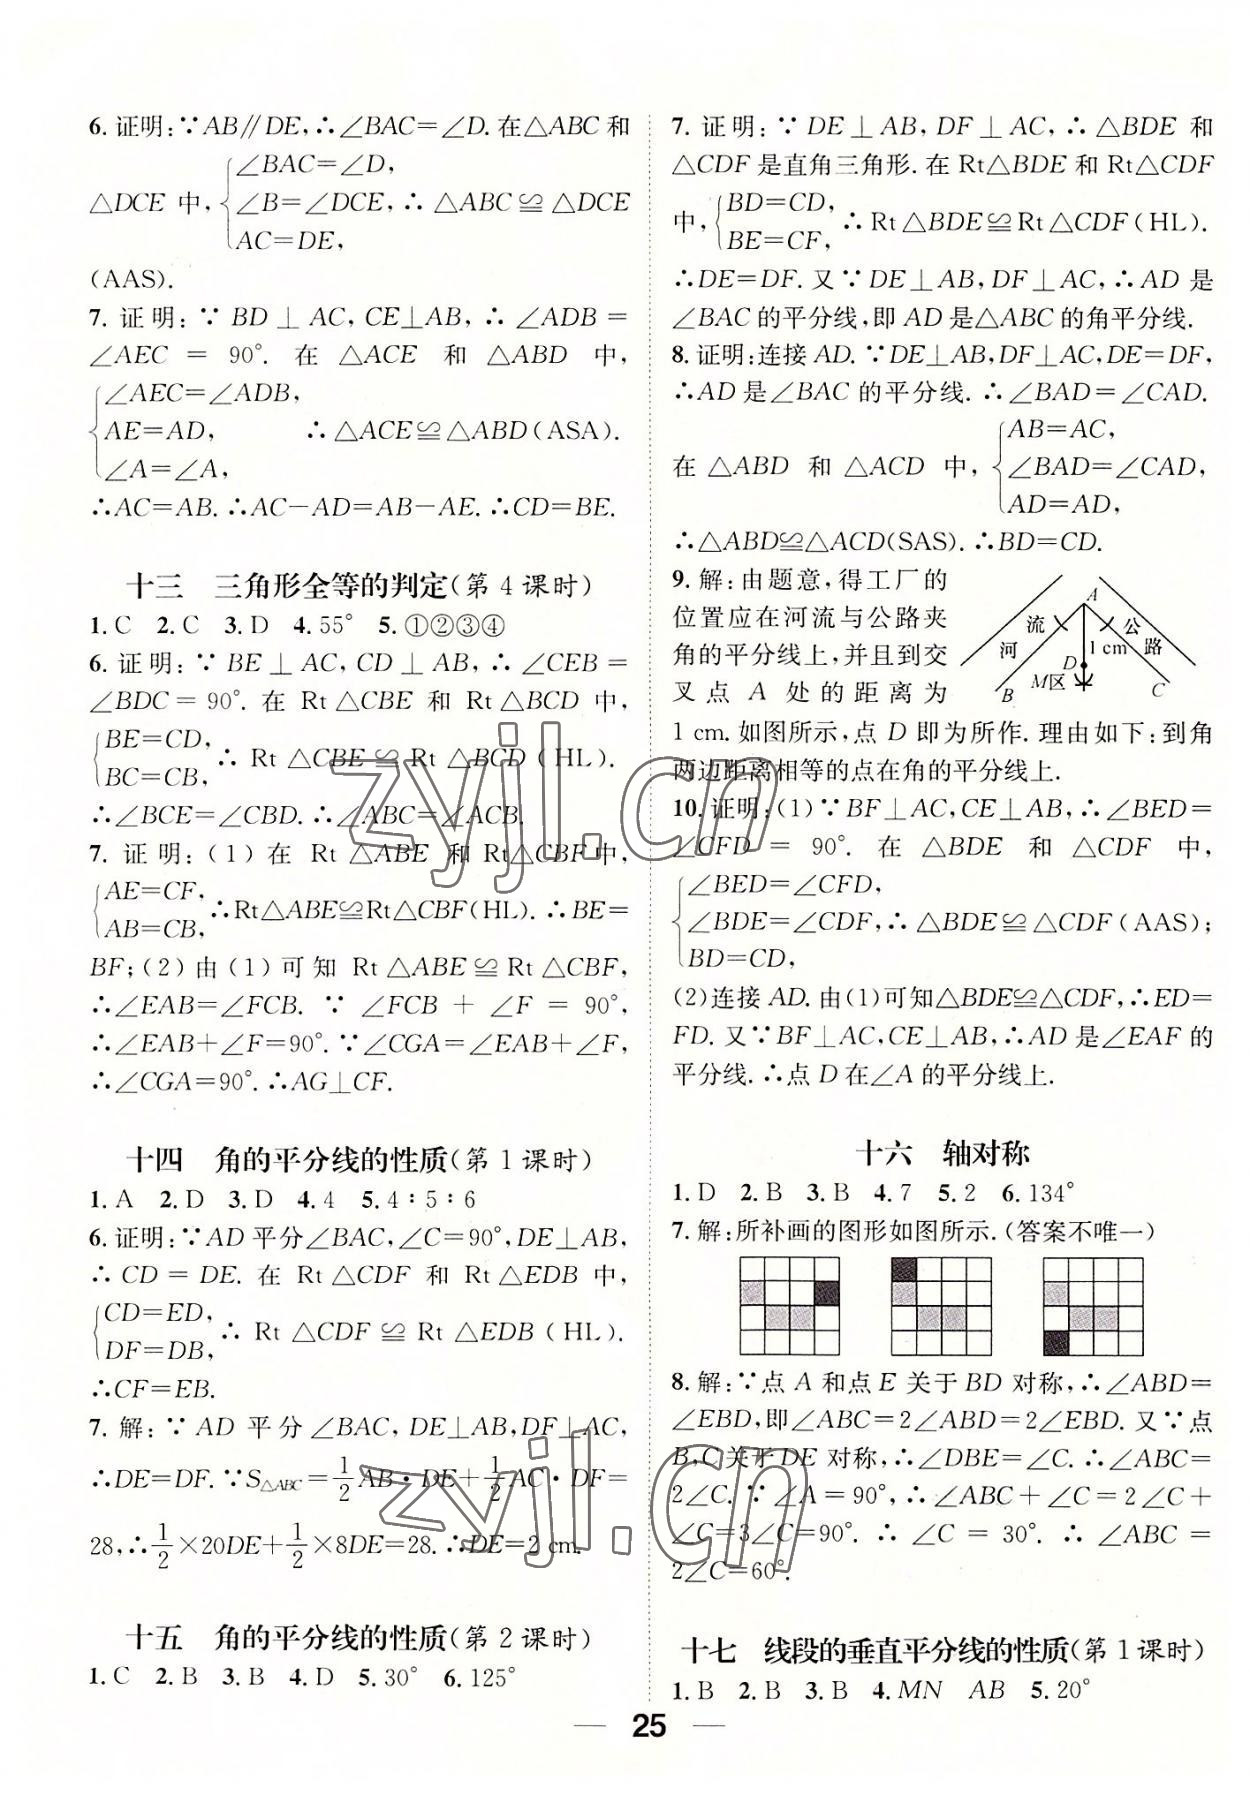 6. 证明:∵AB∥DE,∴∠BAC=∠D.在△ABC和
∠BAC=∠D,
△DCE 中,{∠B=∠DCE,∴△ABC≌△DCE
AC=DE,
(AAS).
7. 证明:∵BD⊥AC,CE⊥AB,∴∠ADB=
∠AEC = 90°. 在 △ACE 和 △ABD 中,
∠AEC=∠ADB,
AE=AD, ∴△ACE≌△ABD(ASA).
∠A=∠A,
∴AC=AB.∴AC-AD=AB-AE.∴CD=BE.
十三 三角形全等的判定(第4课时)
1.C 2.C 3.D 4.55° 5.①②③④
6. 证明:∵BE⊥AC,CD⊥AB,∴∠CEB=
∠BDC=90°.在 Rt△CBE 和 Rt△BCD 中,
BE=CD,
BC=CB,
∴Rt△CBE≌Rt△BCD(HL).
∴∠BCE=∠CBD.∴∠ABC=∠ACB.
7. 证明:(1)在 Rt△ABE 和 Rt△CBF中,
AE=CF,
AB=CB,
∴Rt△ABE≌Rt△CBF(HL).∴BE=
BF;(2)由(1)可知 Rt△ABE≌Rt△CBF,
∴∠EAB=∠FCB. ∵∠FCB+∠F=90°,
∴∠EAB+∠F=90°.∵∠CGA=∠EAB+∠F,
∴∠CGA=90°.∴AG⊥CF.
十四 角的平分线的性质(第1课时)
1.A 2.D 3.D 4.4 5.4∶5∶6
6.证明:∵AD平分∠BAC,∠C=90°,DE⊥AB,
∴CD=DE.在 Rt△CDF 和 Rt△EDB 中,
CD=ED,
DF=DB,
∴Rt△CDF≌Rt△EDB(HL).
∴CF=EB.
7.解:∵AD平分∠BAC,DE⊥AB,DF⊥AC,
∴DE=DF.∵S△ABC=1/2AB·DE+1/2AC·DF=
28,∴1/2×20DE+1/2×8DE=28.∴DE=2 cm.
十五 角的平分线的性质(第2课时)
1.C 2.B 3.B 4.D 5.30° 6.125°
7. 证明:∵DE⊥AB,DF⊥AC,∴△BDE 和
△CDF是直角三角形.在 Rt△BDE 和 Rt△CDF
中,{BD=CD,
BE=CF,
∴Rt△BDE≌Rt△CDF(HL).
∴DE=DF.又∵DE⊥AB,DF⊥AC,∴AD 是
∠BAC的平分线,即AD是△ABC的角平分线.
8.证明:连接AD.∵DE⊥AB,DF⊥AC,DE=DF,
∴AD是∠BAC的平分线.∴∠BAD=∠CAD.
AB=AC,
在△ABD 和△ACD 中,{∠BAD=∠CAD,
AD=AD,
∴△ABD≌△ACD(SAS).∴BD=CD.
9.解:由题意,得工厂的
位置应在河流与公路夹
角的平分线上,并且到交
叉点 A 处的距离为
1 cm.如图所示,点D即为所作.理由如下:到角
两边距离相等的点在角的平分线上.
A
流
公
河
1 cm
路
D
M区
B
C
10.证明:(1)∵BF⊥AC,CE⊥AB,∴∠BED=
∠CFD = 90°. 在 △BDE 和 △CDF 中,
∠BED=∠CFD,
∠BDE=∠CDF,∴△BDE≌△CDF(AAS);
BD=CD,
(2)连接AD.由(1)可知△BDE≌△CDF,∴ED=
FD.又∵BF⊥AC,CE⊥AB,∴AD是∠EAF的
平分线.∴点D在∠A的平分线上.
十六 轴对称
1.D 2.B 3.B 4.7 5.2 6.134°
7.解:所补画的图形如图所示.(答案不唯一)
8.解:∵点A和点E关于BD对称,∴∠ABD=
∠EBD,即∠ABC=2∠ABD=2∠EBD.又∵点
B,C关于DE对称,∴∠DBE=∠C.∴∠ABC=
2∠C.∵∠A=90°,∴∠ABC+∠C=2∠C+
∠C=3∠C=90°.∴∠C=30°.∴∠ABC=
2∠C=60°.
十七 线段的垂直平分线的性质(第1课时)
1.B 2.B 3.B 4.MN AB 5.20°
25
zyjl.cn
zyjl.cn